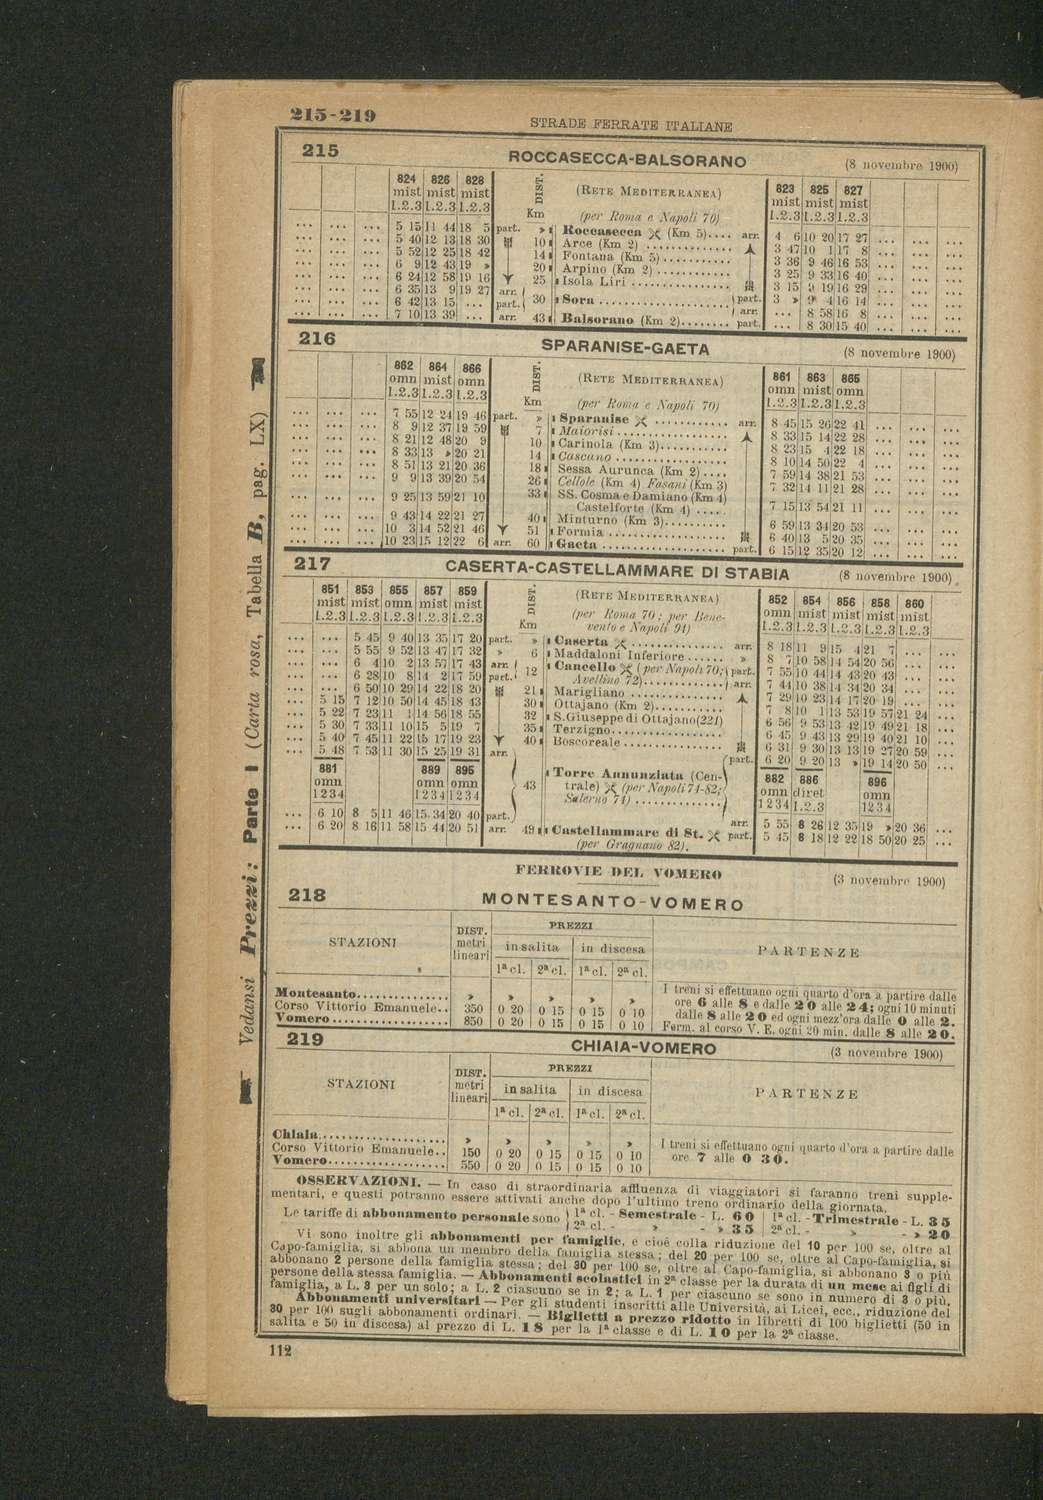 215-219
STRADE FERRATE ITALIANE
215 ROCCASECCA-BALSORANO (8 novembre 1900)
824 826 828 DIST. (RETE MEDITERRANEA) 823 825 827
mist mist mist mist mist mist
1.2.3 1.2.3 1.2.3 Km (per Roma e Napoli 70) 1.2.3 1.2.3 1.2.3
... ... ... 5 15 11 44 18 5 part. » Roccasecca (Km 5).... arr. 4 6 10 20 17 27 ... ... ...
... ... ... 5 40 12 13 18 30 10 Arce (Km 2) ............ 3 47 10 1 17 8 ... ... ...
... ... ... 5 52 12 25 18 42 14 Fontana (Km 5)........... 3 36 9 46 16 53 ... ... ...
... ... ... 6 9 12 43 19 » 20 Arpino (Km 2)............ 3 25 9 33 16 40 ... ... ...
... ... ... 6 24 12 58 19 16 25 Isola Liri ............... 3 15 9 19 16 29 ... ... ...
... ... ... 6 35 13 9 19 27 arr. 30 Sora .................. part. 3 » 9 4 16 14 ... ... ...
... ... ... 6 42 13 15 ... part. arr. ... 8 58 16 8 ... ... ...
... ... ... 7 10 13 39 ... arr. 43 Balsorano (Km 2)........ part. ... 8 30 15 40 ... ... ...
216 SPARANISE-GAETA (8 novembre 1900)
862 864 866 DIST. (RETE MEDITERRANEA) 861 863 865
omn mist omn omn mist omn
1.2.3 1.2.3 1.2.3 Km (per Roma e Napoli 70) 1.2.3 1.2.3 1.2.3
... ... ... 7 55 12 24 19 46 part. » Sparanise ........... arr. 8 45 15 26 22 41 ... ... ...
... ... ... 8 9 12 37 19 59 7 Maiorisi ................. 8 33 15 14 22 28 ... ... ...
... ... ... 8 21 12 48 20 9 10 Carinola (Km 3).......... 8 23 15 4 22 18 ... ... ...
... ... ... 8 33 13 » 20 21 14 Cascano ................. 8 10 14 50 22 4 ... ... ...
... ... ... 8 51 13 21 20 36 18 Sessa Aurunca (Km 2).... 7 59 14 38 21 53 ... ... ...
... ... ... 9 9 13 39 20 54 26 Cellole (Km 4) Fasani (Km 3) 7 32 14 11 21 28 ... ... ...
... ... ... 9 25 13 59 21 10 33 SS. Cosma e Damiano (Km 4)
Castelforte (Km 4) ..... 7 15 13 54 21 11 ... ... ...
... ... ... 9 43 14 22 21 27 40 Minturno (Km 3).......... 6 59 13 34 20 53 ... ... ...
... ... ... 10 3 14 52 21 46 51 Formia .................. 6 40 13 5 20 35 ... ... ...
... ... ... 10 23 15 12 22 6 arr. 60 Gaeta .................. part. 6 15 12 35 20 12 ... ... ...
217 CASERTA-CASTELLAMMARE DI STABIA (8 novembre 1900)
851 853 855 857 859 DIST. (RETE MEDITERRANEA) 852 854 856 858 860
mist mist omn mist mist (per Roma 70; per Bene- omn mist mist mist mist
1.2.3 1.2.3 1.2.3 1.2.3 1.2.3 Km vento e Napoli 91) 1.2.3 1.2.3 1.2.3 1.2.3 1.2.3
... ... 5 45 9 40 13 35 17 20 part. » Caserta ............. arr. 8 18 11 9 15 4 21 7 ... ...
... ... 5 55 9 52 13 47 17 32 » 6 Maddaloni Inferiore ...... » 8 7 10 58 14 54 20 56 ... ...
... ... 6 4 10 2 13 57 17 43 arr. 12 Cancello (per Napoli 70; part. 7 55 10 44 14 43 20 43 ... ...
... ... 6 28 10 8 14 2 17 59 part. Avellino 72)............ arr. 7 44 10 38 14 34 20 34 ... ...
... ... 6 50 10 29 14 22 18 20 21 Marigliano .............. 7 29 10 23 14 17 20 19 ... ...
... 5 15 7 12 10 50 14 45 18 43 30 Ottajano (Km 2).......... 7 8 10 1 13 53 19 57 21 24 ...
... 5 22 7 23 11 1 14 56 18 55 32 S. Giuseppe di Ottajano (221) 6 56 9 53 13 42 19 49 21 18 ...
... 5 30 7 33 11 10 15 5 19 7 35 Terzigno................. 6 45 9 43 13 29 19 40 21 10 ...
... 5 40 7 45 11 22 15 17 19 23 40 Boscoreale............... 6 31 9 30 13 13 19 27 20 59 ...
... 5 48 7 53 11 30 15 25 19 31 arr. part. 6 20 9 20 13 » 19 14 20 50 ...
881 889 895 43 Torre Annunziata (Cen- 882 886 896
omn omn omn trale) (per Napoli 74-82; omn diret omn
1 2 3 4 1 2 3 4 1 2 3 4 Salerno 74) ............ 1 2 3 4 1.2.3 1 2 3 4
... 6 10 8 5 11 46 15 34 20 40 part. arr. 5 55 8 26 12 35 19 » 20 36 ...
... 6 20 8 16 11 58 15 44 20 51 arr. 49 Castellammare di St. part. 5 45 8 18 12 22 18 50 20 25 ...
(per Gragnano 82).
FERROVIE DEL VOMERO (3 novembre 1900)
218 MONTESANTO-VOMERO
STAZIONI DIST. metri lineari PREZZI PARTENZE
in salita in discesa
1ª cl. 2ª cl. 1ª cl. 2ª cl.
Montesanto.............. » » » » » I treni si effettuano ogni quarto d'ora a partire dalle
Corso Vittorio Emanuele.. 350 0 20 0 15 0 15 0 10 ore 6 alle 8 e dalle 20 alle 24; ogni 10 minuti
Vomero................. 850 0 20 0 15 0 15 0 10 dalle 8 alle 20 ed ogni mezz'ora dalle 0 alle 2.
Ferm. al corso V. E. ogni 20 min. dalle 8 alle 20.
219 CHIAIA-VOMERO (3 novembre 1900)
STAZIONI DIST. metri lineari PREZZI PARTENZE
in salita in discesa
1ª cl. 2ª cl. 1ª cl. 2ª cl.
Chiaia.................. » » » » » I treni si effettuano ogni quarto d'ora a partire dalle
Corso Vittorio Emanuele.. 150 0 20 0 15 0 15 0 10 ore 7 alle 0 30.
Vomero................. 550 0 20 0 15 0 15 0 10
OSSERVAZIONI. — In caso di straordinaria affluenza di viaggiatori si faranno treni supple-
mentari, e questi potranno essere attivati anche dopo l'ultimo treno ordinario della giornata.
Le tariffe di abbonamento personale sono 1ª cl. - Semestrale - L. 60 1ª cl. - Trimestrale - L. 35
2ª cl. - » - » 35 2ª cl. - » - » 20
Vi sono inoltre gli abbonamenti per famiglie, e cioè colla riduzione del 10 per 100 se, oltre al
Capo-famiglia, si abbona un membro della famiglia stessa; del 20 per 100 se, oltre al Capo-famiglia, si
abbonano 2 persone della famiglia stessa; del 30 per 100 se, oltre al Capo-famiglia, si abbonano 3 o più
persone della stessa famiglia. — Abbonamenti scolastici in 2ª classe per la durata di un mese ai figli di
famiglia, a L. 3 per un solo; a L. 2 ciascuno se in 2; a L. 1 per ciascuno se sono in numero di 3 o più.
Abbonamenti universitari — Per gli studenti inscritti alle Università, ai Licei, ecc., riduzione del
30 per 100 sugli abbonamenti ordinari. — Biglietti a prezzo ridotto in libretti di 100 biglietti (50 in
salita e 50 in discesa) al prezzo di L. 18 per la 1ª classe e di L. 10 per la 2ª classe.
112
Vedansi Prezzi: Parte I (Carta rosa, Tabella B, pag. LX)